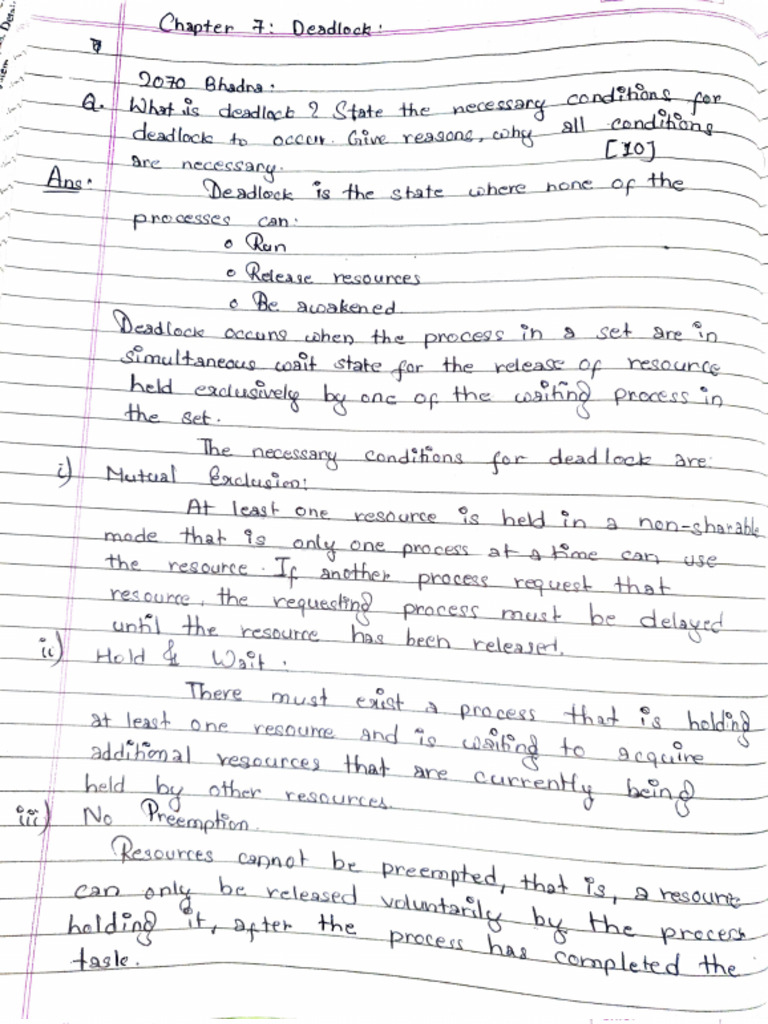 Chapter 7: Deadlock:
2070 Bhadra:
Q. What is deadlock? State the necessary conditions for
deadlock to occur. Give reasons, why all conditions
are necessary. [10]
Ans:
Deadlock is the state where none of the
processes can:
o Run
o Release resources
o Be awakened.
Deadlock occurs when the process in a set are in
simultaneous wait state for the release of resource
held exclusively by one of the waiting process in
the set.
The necessary conditions for deadlock are:
i) Mutual Exclusion:
At least one resource is held in a non-sharable
mode that is only one process at a time can use
the resource. If another process request that
resource, the requesting process must be delayed
until the resource has been released.
ii) Hold & Wait.
There must exist a process that is holding
at least one resource and is waiting to acquire
additional resources that are currently being
held by other resources.
iii) No Preemption.
Resources cannot be preempted, that is, a resource
can only be released voluntarily by the process
holding it, after the process has completed the
task.